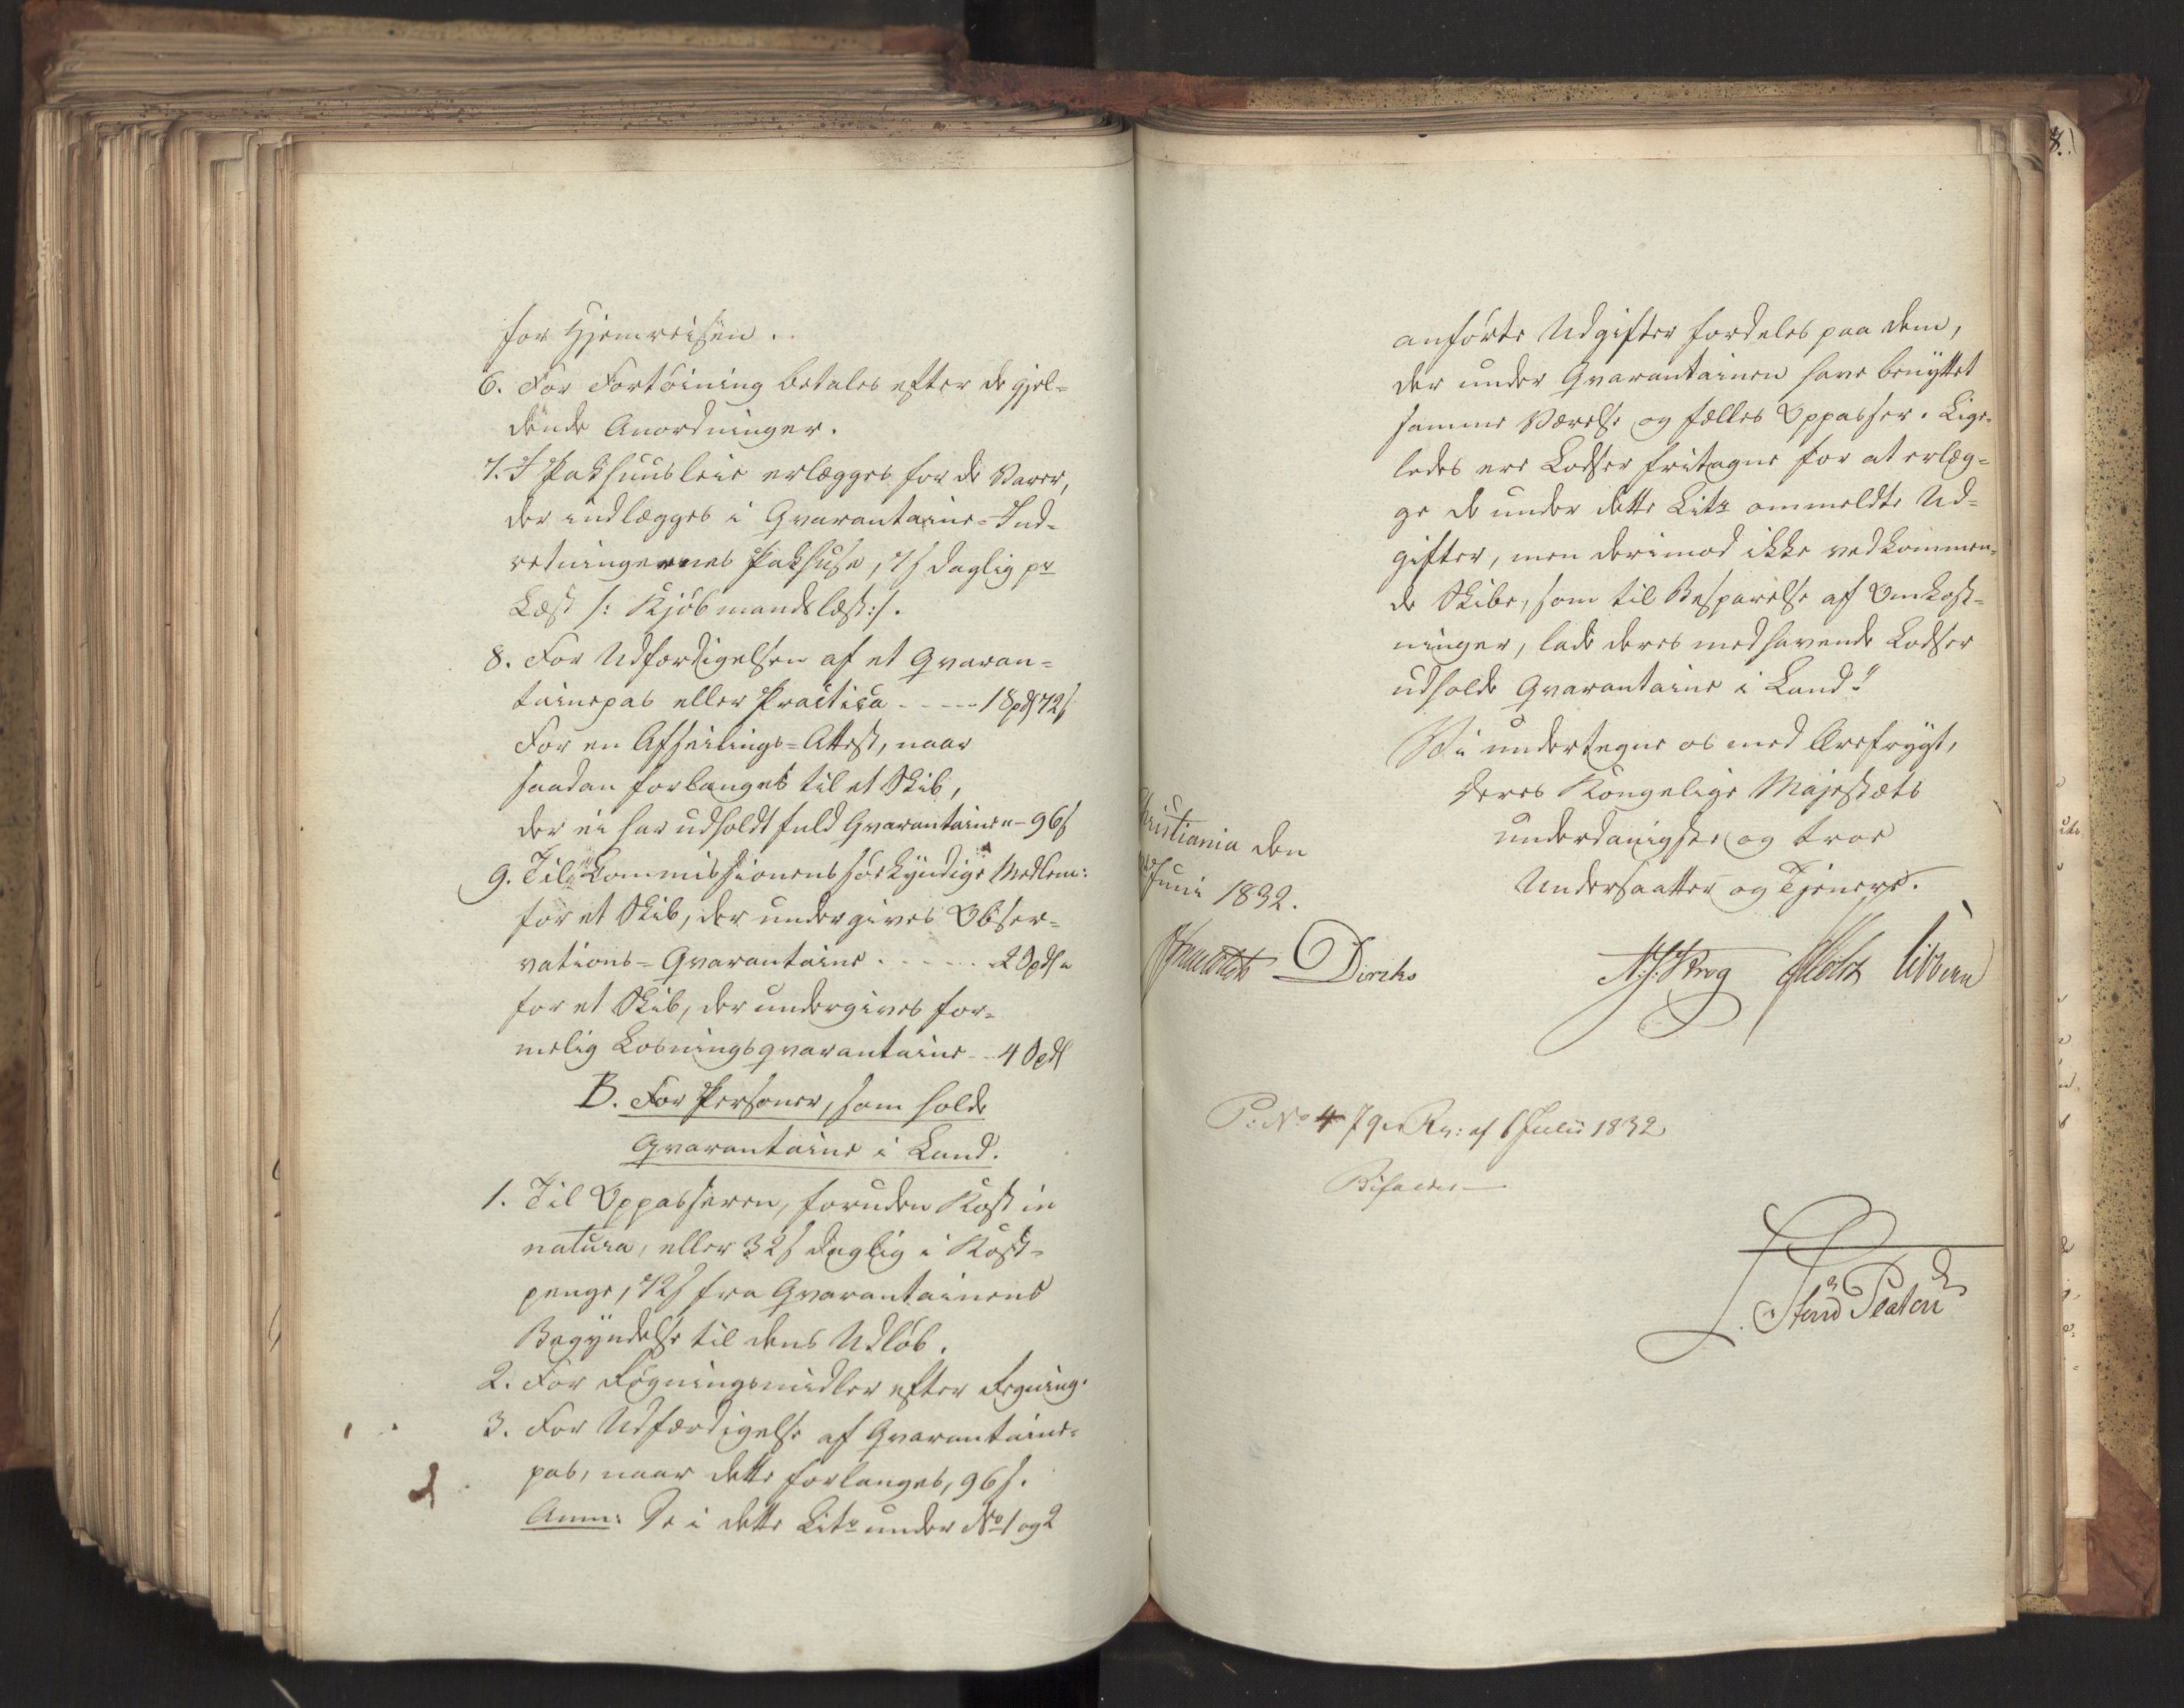 for Hjemreisen.
6. For Fortöining betales efter de gjel-
dende Anordninger.
7. I Pakhuusleie erlægges for de Varer,
der indlægges i Qvarantaine-Ind-
retningernes Pakhuse, 7 s daglig pr
Læst /: Kjöbmandslæst :/.
8. For Udfærdigelsen af et Qvaran-
tainepas eller Practica - - - - - 1 Spd 72 s
For en Afseilings-Attest, naar
saadan forlanges til et Skib,
der ei har udholdt fuld Qvarantaine - 96 s
9. Til Commissionens sökyndige Medlem:
for et Skib, der undergives Obser-
vations-Qvarantaine - - - - - 2 Spd
for et Skib, der undergives for-
melig Losningsqvarantaine - - 4 Spd
B. For Personer, som holde
Qvarantaine i Land.
1. Til Oppasseren, foruden Kost in
natura, eller 32 s daglig i Kost-
penge, 72 s fra Qvarantainens
Begyndelse til dens Udlöb.
2. For Rögningsmidler efter Regning.
3. For Udfærdigelse af Qvarantaine-
pas, naar dette forlanges, 96 s.
Anm: De i dette Litr under No 1 og 2
anförte Udgifter fordeles paa dem,
der under Qvarantainen have benyttet
samme Værelse og fælles Oppasser. Lige-
ledes ere Lodser fritagne for at erlæg-
ge de under dette Litr ommeldte Ud-
gifter, men derimod ikke vedkommen-
de Skibe, som til Besparelse af Omkost-
ninger, lade deres medhavende Lodser
udholde Qvarantaine i Land."
Vi undertegne os med Ærefrygt,
Deres Kongelige Majestæts
underdanigste og troe
Undersaatter og Tjenere.
Christiania den
Juni 1832.
Diriks Krog Holst Vibe
P: No 4 79 Rs: af 6 Julii 1832
Bifaldes
Platou